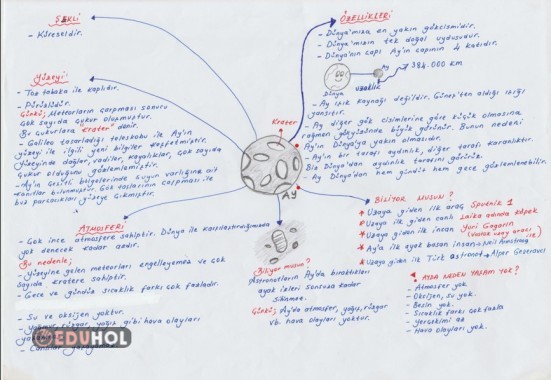 ŞEKLİ
- Küreseldir.
Yüzeyi
- Toz tabaka ile kaplıdır.
- Pürüzlüdür.
Çünkü; Meteorların çarpması sonucu
çok sayıda çukur oluşmuştur.
Bu çukurlara "Krater" denir.
- Galileo tasarladığı teleskobu ile Ay'ın
yüzeyi ile ilgili yeni bilgiler keşfetmiştir.
Yüzeyinde dağlar, vadiler, kayalıklar, çok sayıda
çukur olduğunu gözlemlemiştir.
- Ay'ın çeşitli bölgelerinde suyun varlığına ait
kanıtlar bulunmuştur. Gök taşlarının çarpması ile
buz parçacıkları yüzeye çıkmıştır.
ATMOSFERİ
- Çok ince atmosfere sahiptir. Dünya ile karşılaştırdığımızda
yok denecek kadar azdır.
Bu nedenle;
- Yüzeyine gelen meteorları engelleyemez ve çok
sayıda kratere sahiptir.
- Gece ve gündüz sıcaklık farkı çok fazladır.
- Su ve oksijen yoktur.
- Yağmur, rüzgar, yağış gibi hava olayları
EDUHOL
Krater
Ay
ÖZELLİKLERİ
- Dünya'mıza en yakın gökcismidir.
- Dünya'mızın tek doğal uydusudur.
- Dünya'nın çapı Ay'ın çapının 4 katıdır.
Ay
384.000 km
Dünya uzaklık
- Ay ışık kaynağı değildir. Güneş'ten aldığı ışığı
yansıtır.
- Ay diğer gök cisimlerine göre küçük olmasına
rağmen gökyüzünde büyük görünür. Bunun nedeni
Ay'ın Dünya'ya yakın olmasıdır.
- Ay'ın bir tarafı aydınlık, diğer tarafı karanlıktır.
Biz Dünya'dan aydınlık tarafını görürüz.
- Ay Dünya'dan hem gündüz hem gece gözlemlenebilir.
BİLİYOR MUSUN?
* Uzaya giden ilk araç Sputnik 1
* Uzaya giden ilk canlı Laika adında köpek
* Uzaya giden ilk insan Yuri Gagarin
* Ay'a ilk ayak basan insan Neil Armstrong
* Uzaya giden ilk Türk astronot Alper Gezeravcı
Biliyor musun?
Astronotların Ay'da bıraktıkları
ayak izleri sonsuza kadar
silinmez.
Çünkü; Ay'da atmosfer, yağış, rüzgar
vb. hava olayları yoktur.
* AYDA NEDEN YAŞAM YOK?
- Atmosfer yok
- Oksijen, su yok.
- Besin yok.
- Sıcaklık farkı çok fazla
- Yerçekimi az
- Hava olayları yok.